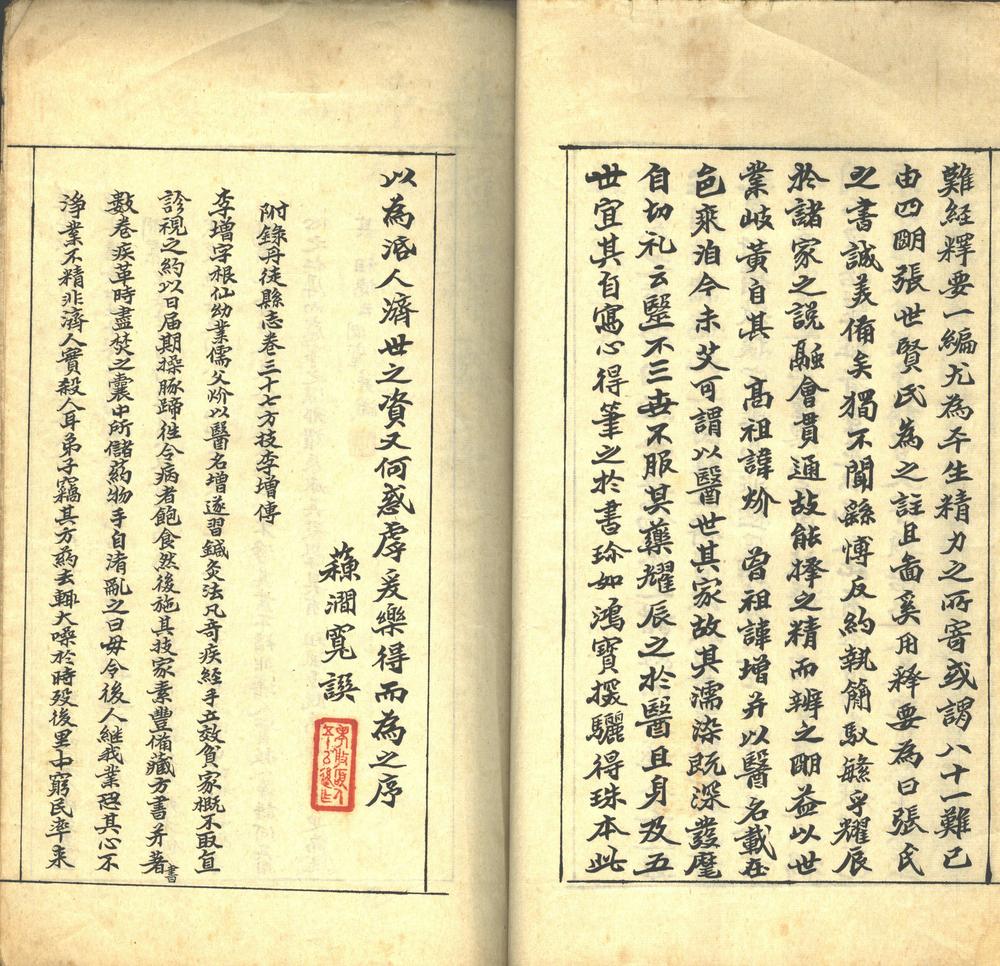 難經釋要一編尤為平生精力之所寄或謂八十一難已
由四明張世賢氏為之註且圖奚用釋要為曰張氏
之書誠美備矣獨不聞繇博反約執簡馭繇乎耀辰
於諸家之說融會貫通故能擇之精而辨之明益以世
業岐黃自其 高祖諱炌 曾祖諱增并以醫名載在
邑乘洎今未艾可謂以醫世其家故其濡染既深發麾
自切礼云醫不三世不服其藥耀辰之於醫且身及五
世宜其自寫心得筆之於書珍如鴻寶探驪得珠本此
以為活人濟世之資又何惑虖爰樂得而為之序
蘓澗寬譔
附錄丹徒縣志卷三十七方技李增傳
李增字根仙幼業儒父炌以醫名增遂習鍼灸法凡奇疾經手立效貧家概不取直
診視之約以日届期操豚蹄往令病者飽食然後施其技家素豐備藏方書并著書
數卷疾革時盡焚之囊中所儲葯物手自淆亂之曰毋令後人継我業恐其心不
淨業不精非濟人實殺人耳弟子竊其方葯去輒大噪於時歿後里中窮民率来